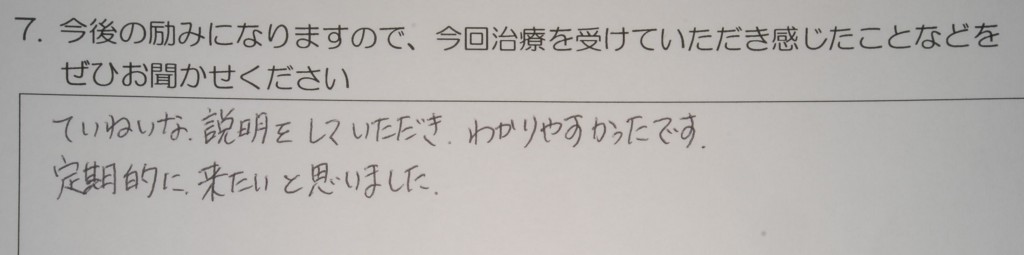 7. 今後の励みになりますので、今回治療を受けていただき感じたことなどを
ぜひお聞かせください
ていねいな.説明をしていただき.わかりやすかったです.
定期的に.来たいと思いました.